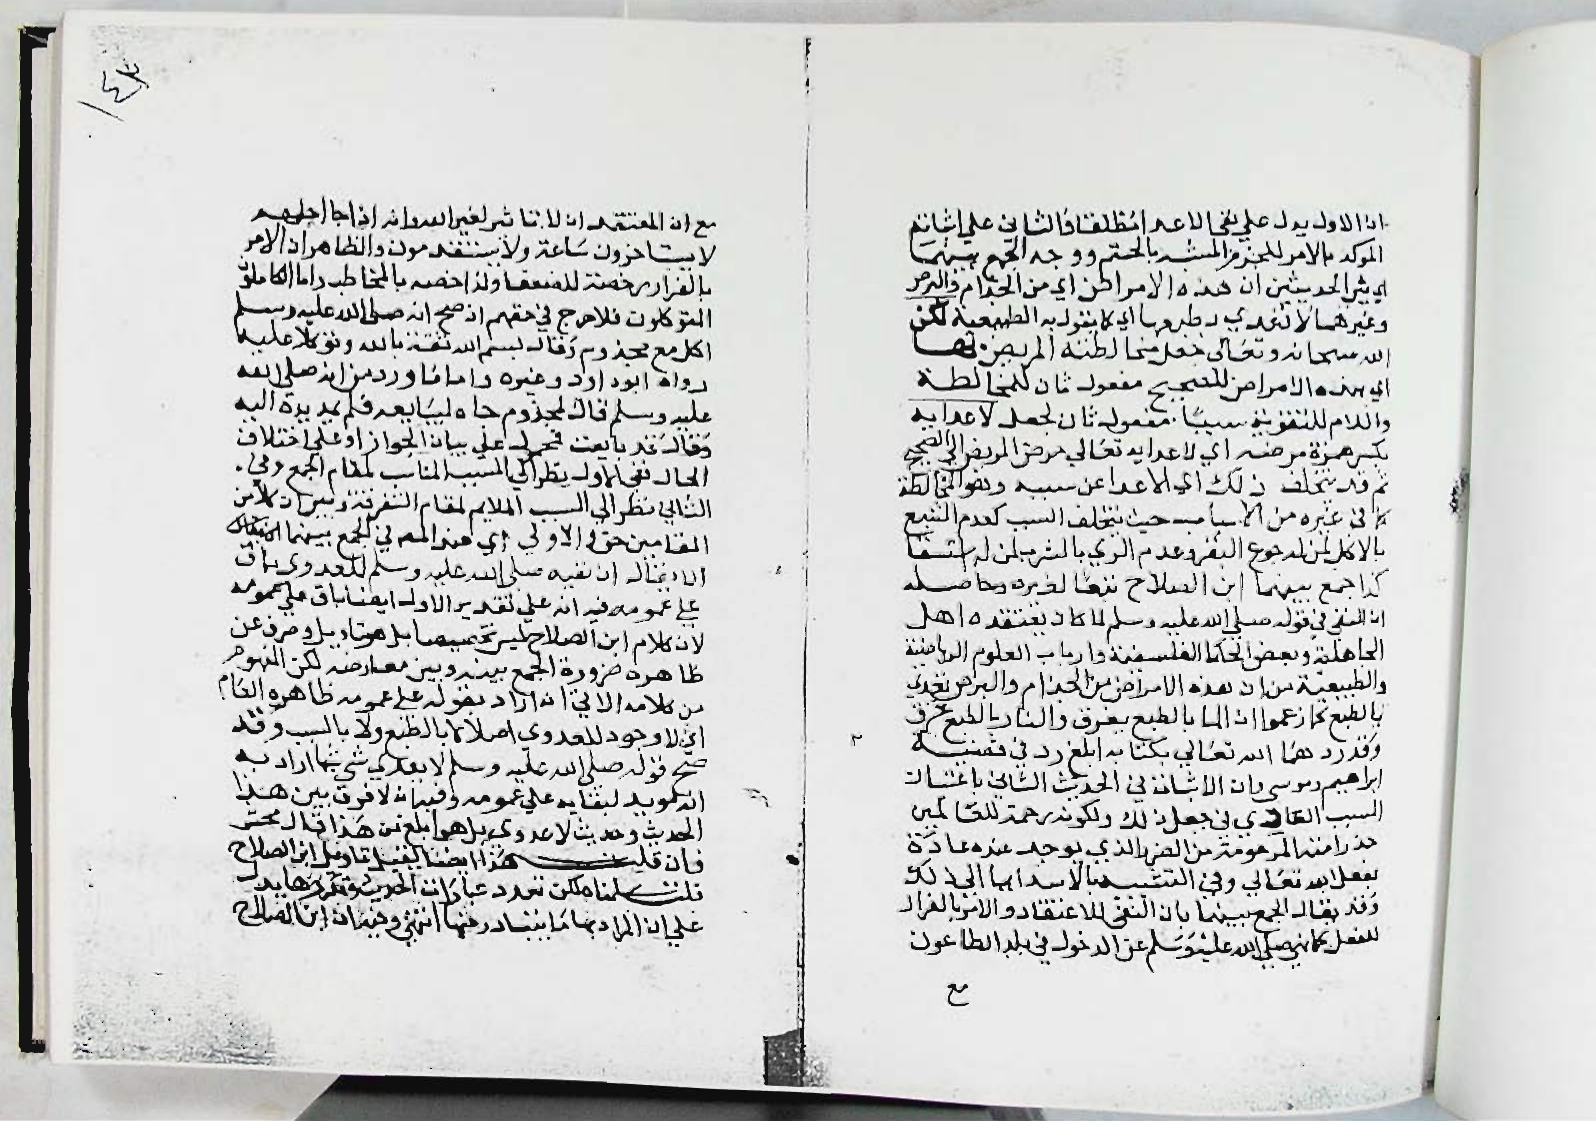 ان الاول يدل علي نفي الاعدا مطلقا والثاني علي اثباته
الموكد بالامر للمجزم المشبه بالحتم ووجه الجمع بينهما
اي بين الحديثين ان هذه الامراض اي من الجذام والبرص
وغيرهما لا تعدي بطبعها اي كما يقول به الطبيعية لكن
الله سبحانه وتعالي جعل مخالطة المريض بها
اي بهذه الامراض للصحيح مفعول ثان للمخالطة
واللام للتقوية سببا مفعول ثان لجعل لاعدايه
بكسر همزة مرضه اي لاعدايه تعالي مرض المريض الي الصحيح
ثم قد يتخلف ذلك اي الاعدا عن سببه وهو المخالطة
كما في غيره من الاسباب حيث يتخلف السبب كعدم الشبع
بالاكل لمن له جوع البقر وعدم الري بالشرب لمن له استسقا
كذا جمع بينهما ابن الصلاح تبعا لغيره وحاصله
ان النفي في قوله صلي الله عليه وسلم لما كان يعتقده اهل
الجاهلية وبعض الحكما الفلسفية وارباب العلوم الرياضية
والطبيعية من ان هذه الامراض من الجذام والبرص تعدي
بالطبع كما زعموا ان الما بالطبع يغرق والنار بالطبع تحرق
وقد رد هما الله تعالي بكتابه ابلغ رد في قضية
ابراهيم وموسي وان الاثبات في الحديث الثاني باعتبار
السبب العادي في جعل ذلك ولكونه رحمة للعالمين
حذر امته المرحومة من الضرر الذي يوجد عنده عادة
بفعل الله تعالي وفي التشبيه بالاسد ايما الي ذلك
وقد يقال الجمع بينهما بان النفي للاعتقاد والامر بالفرار
للفعل كما نهي صلي الله عليه وسلم عن الدخول في بلد الطاعون
مع
١٤٣
مع ان المعتقد ان لا تاثير لغير الله وانه اذا جا اجلهم
لا يستاخرون ساعة ولا يستقدمون والظاهر ان الامر
بالفرار رخصة للضعفا ولذا خصه بالمخاطب واما الكاملون
المتوكلون فلا حرج في حقهم اذ صح انه صلي الله عليه وسلم
اكل مع مجذوم وقال بسم الله ثقة بالله وتوكلا عليه
رواه ابو داود وغيره واما ما ورد من انه صلي الله
عليه وسلم قال لمجذوم جاه ليبايعه فلم يمد يده اليه
وقال قد بايعت فمحمول علي بيان الجواز او علي اختلاف
الحال ففي الاول نظر الي المسبب المناسب لمقام الجمع وفي
الثاني نظر الي السبب الملايم لمقام التفرقة وبين ان كلا من
المقامين حق والاولي اي عند المص في الجمع بينهما
ان يقال ان نفيه صلي الله عليه وسلم للعدوي باق
علي عمومه فيه انه علي تقدير الاول ايضا باق علي عمومه
لان كلام ابن الصلاح ليس تخصيصا بل هو تاويل وصرف عن
ظاهره ضرورة الجمع بينه وبين معارضه لكن المفهوم
من كلامه الاتي انه اراد بقوله علي عمومه ظاهره العام
اي لا وجود للعدوي اصلا لا بالطبع ولا بالسبب وقد
صح قوله صلي الله عليه وسلم لا يعدي شي شيا اراد به
انه مويد لبقايه علي عمومه وفيه انه لا فرق بين هذا
الحديث وحديث لا عدوي بل هو ابلغ من هذا قال محشي
فان قلت هذا ايضا يقبل تاويل ابن الصلاح
قلت سلمناه لكن تعدد عبارات الحديث وتكررها يدل
علي ان المراد بها ما يتبادر منها انتهي وفيه ان ابن الصلاح